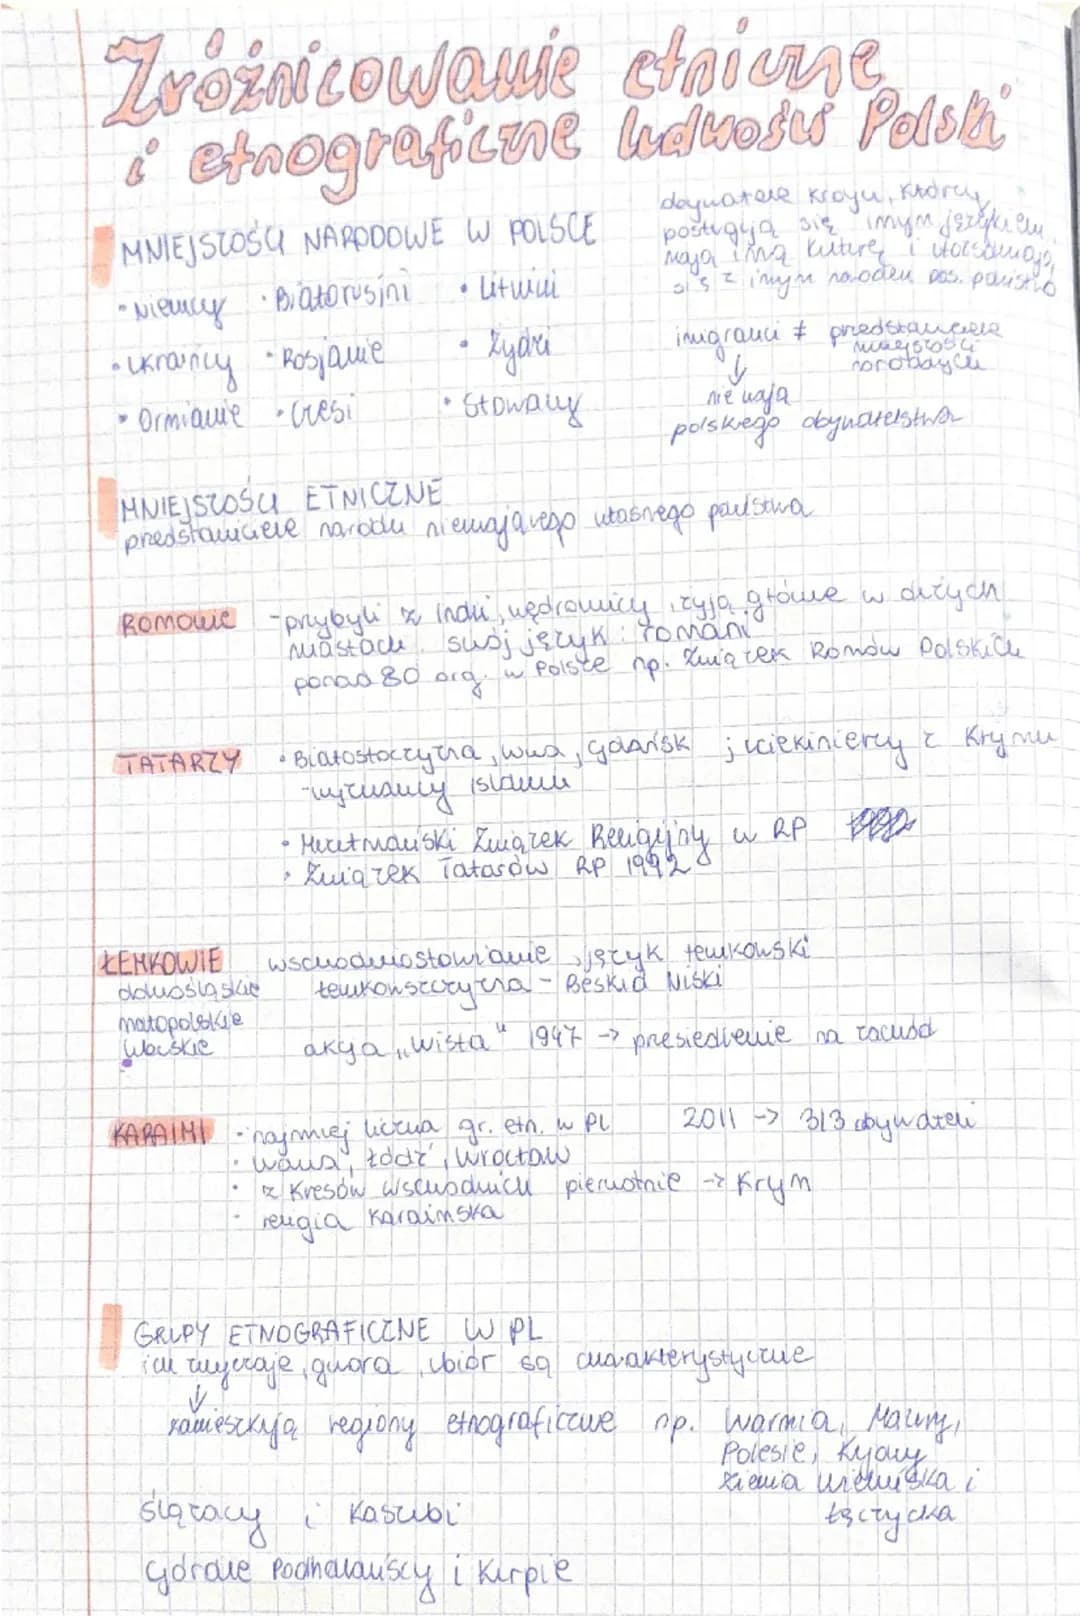 Zróżnicowanie etniczne
i etnograficzne ludności Polski
MNIEJSZOŚCI NARODOWE W POLSCE
obywatele kraju, którzy
posługują się innym językiem,
mają inną kulturę i utożsamiają
się z innym narodem pos. państwo
• Niemcy • Białorusini • Litwini
• Ukraińcy • Rosjanie • Żydzi
• Ormianie • Czesi • Słowacy
imigranci ≠ przedstawiciele
mniejszości
narodowych
↓
nie mają
polskiego obywatelstwa
MNIEJSZOŚCI ETNICZNE
przedstawiciele narodu niemającego własnego państwa
ROMOWIE - przybyli z Indii, wędrowcy, żyją główne w dużych
miastach. swój język: romani
ponad 80 org. w Polsce np. Związek Romów Polskich
TATARZY • Białostocczyzna, wwa, Gdańsk ; uciekinierzy z Krymu
- wyznawcy islamu
• Muzułmański Związek Religijny w RP
• Związek Tatarów RP 1992
ŁEMKOWIE wschodniosłowianie, język łemkowski
dolnośląskie łemkowszczyzna - Beskid Niski
małopolskie
lubuskie akcja „Wisła" 1947 → przesiedlenie na zachód
KARAIMI • najmniej liczna gr. etn. w PL 2011 → 313 obywateli
• wawa, Łódź, Wrocław
• z Kresów wschodnich pierwotnie → Krym
• religia karaimska
GRUPY ETNOGRAFICZNE W PL
ich zwyczaje, gwara, ubiór są charakterystyczne
↓
zamieszkują regiony etnograficzne np. Warmia, Mazury,
Polesie, Kujawy
ziemia wieluńska i
łęczycka
ślązacy i Kaszubi
Górale Podhalańscy i Kurpie